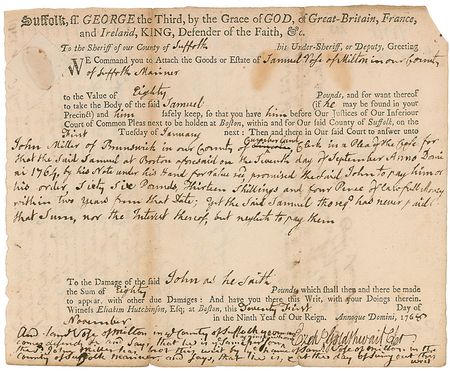 Suffolk, ſſ. GEORGE the Third, by the Grace of GOD, of Great-Britain, France,
and Ireland, KING, Defender of the Faith, &c.
To the Sheriff of our County of Suffolk his Under-Sheriff, or Deputy, Greeting
WE Command you to Attach the Goods or Eſtate of Samuel Vose of Milton in our County
of Suffolk Mariner
to the Value of Eighty Pounds, and for want thereof
to take the Body of the ſaid Samuel (if he may be found in your
Precinct) and him ſafely keep, ſo that you have him before Our Juſtices of Our Inferiour
Court of Common Pleas next to be holden at Boſton, within and for Our ſaid County of Suffolk, on the
First Tueſday of January next: Then and there in Our ſaid Court to anſwer unto
John Miller of Brunswick in our County of Cumberland Clerk in a Plea of the Case for
that the said Samuel at Boston aforesaid on the Seventh day of September Anno Domi
ni 1764, by his Note under his Hand for Value recd promised the said John to pay him or
his order, Sixty Six Pounds, Thirteen Shillings and four Pence of Lawfull Money
within two years from that Date; yet the said Samuel tho' reqd has never paid
that Sum, nor the Interest thereof, but neglects to pay them
To the Damage of the ſaid John as he saith
the Sum of Eighty Pounds, which ſhall then and there be made
to appear, with other due Damages: And have you there this Writ, with your Doings therein.
Witneſs Eliakim Hutchinson, Eſq; at Boſton, this Twenty First Day of
November in the Ninth Year of Our Reign. Annoque Domini, 1768
Ezekl Goldthwait Cler
And Saml Vose of Milton in sd County of Suffolk yeoman
comes defends &c and Says that he is
the sd John Miller has sued this writ by the name of Saml Vose of Milton in the
County of Suffolk mariner and Says, that he is, & at the day of suing out this
writ